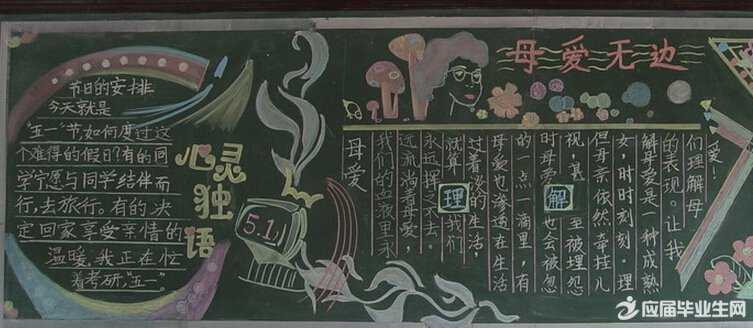 节日的安排
今天就是
"五一"节,如何度过这
个难得的假日?有的同
学宁愿与同学结伴而
行,去旅行。有的决
定回家享受亲情的
温暖,我正在忙
着考研,"五一"。
心灵独语
5.1
母爱无边
母爱
我们的血液里永
远流淌着母爱,
永远挥之不去。
就算我们
过着淡的生活,
母爱也渗透在生活
的一点一滴里,有
时母爱也会被忽
视,甚至被埋怨
但母亲依然牵挂儿
女,时时刻刻。理
解母爱是一种成熟
的表现。让我
们理解母
爱!
理
解
应届毕业生网